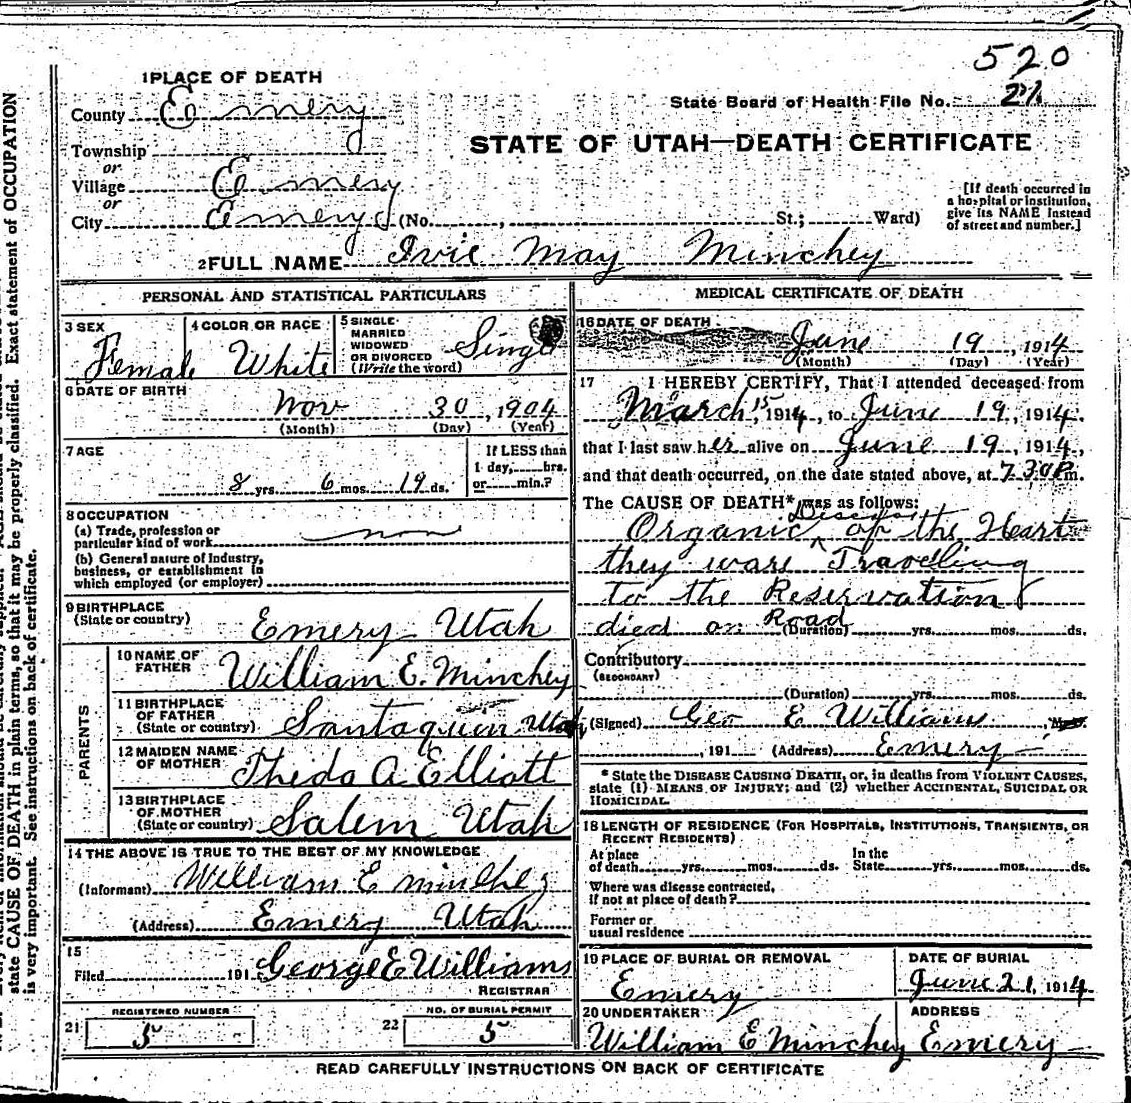 520
1 PLACE OF DEATH
State Board of Health File No. 21
County Emery
STATE OF UTAH—DEATH CERTIFICATE
Township
or
Village Emery
or
City Emery (No. , St.; Ward)
[If death occurred in
a hospital or institution,
give its NAME instead
of street and number.]
2 FULL NAME Ivie May Minchey
PERSONAL AND STATISTICAL PARTICULARS
3 SEX
Female
4 COLOR OR RACE
White
5 SINGLE
MARRIED
WIDOWED
OR DIVORCED
(Write the word)
Single
6 DATE OF BIRTH
Nov 30, 1904
(Month) (Day) (Year)
7 AGE
8 yrs. 6 mos. 19 ds.
If LESS than
1 day, hrs.
or min.?
8 OCCUPATION
(a) Trade, profession or
particular kind of work non
(b) General nature of Industry,
business, or establishment in
which employed (or employer)
9 BIRTHPLACE
(State or country)
Emery Utah
PARENTS
10 NAME OF
FATHER
William E. Minchey
11 BIRTHPLACE
OF FATHER
(State or country)
Santaquin Utah
12 MAIDEN NAME
OF MOTHER
Theda A Elliott
13 BIRTHPLACE
OF MOTHER
(State or country)
Salem Utah
14 THE ABOVE IS TRUE TO THE BEST OF MY KNOWLEDGE
(Informant) William E Minchey
(Address) Emery Utah
15
Filed 191 George E Williams
REGISTRAR
21 REGISTERED NUMBER
5
22 NO. OF BURIAL PERMIT
5
MEDICAL CERTIFICATE OF DEATH
16 DATE OF DEATH
June 19, 1914
(Month) (Day) (Year)
17 I HEREBY CERTIFY, That I attended deceased from
March 15, 1914, to June 19, 1914.
that I last saw her alive on June 19, 1914,
and that death occurred, on the date stated above, at 7.30 P m.
The CAUSE OF DEATH* was as follows:
Organic Disease of the Heart
they ware Travelling
to the Reservation
died on Road
(Duration) yrs. mos. ds.
Contributory
(SECONDARY)
(Duration) yrs. mos. ds.
(Signed) Geo E Williams
, 191 (Address) Emery
* State the DISEASE CAUSING DEATH, or, in deaths from VIOLENT CAUSES,
state (1) MEANS OF INJURY; and (2) whether ACCIDENTAL, SUICIDAL OR
HOMICIDAL.
18 LENGTH OF RESIDENCE (FOR HOSPITALS, INSTITUTIONS, TRANSIENTS, OR
RECENT RESIDENTS)
At place
of death yrs. mos. ds.
In the
State yrs. mos. ds.
Where was disease contracted,
if not at place of death?
Former or
usual residence
19 PLACE OF BURIAL OR REMOVAL
Emery
DATE OF BURIAL
June 21, 1914
20 UNDERTAKER
William E Minchey
ADDRESS
Emery
READ CAREFULLY INSTRUCTIONS ON BACK OF CERTIFICATE
state CAUSE OF DEATH in plain terms, so that it may be properly classified. Exact statement of OCCUPATION
is very important. See instructions on back of certificate.